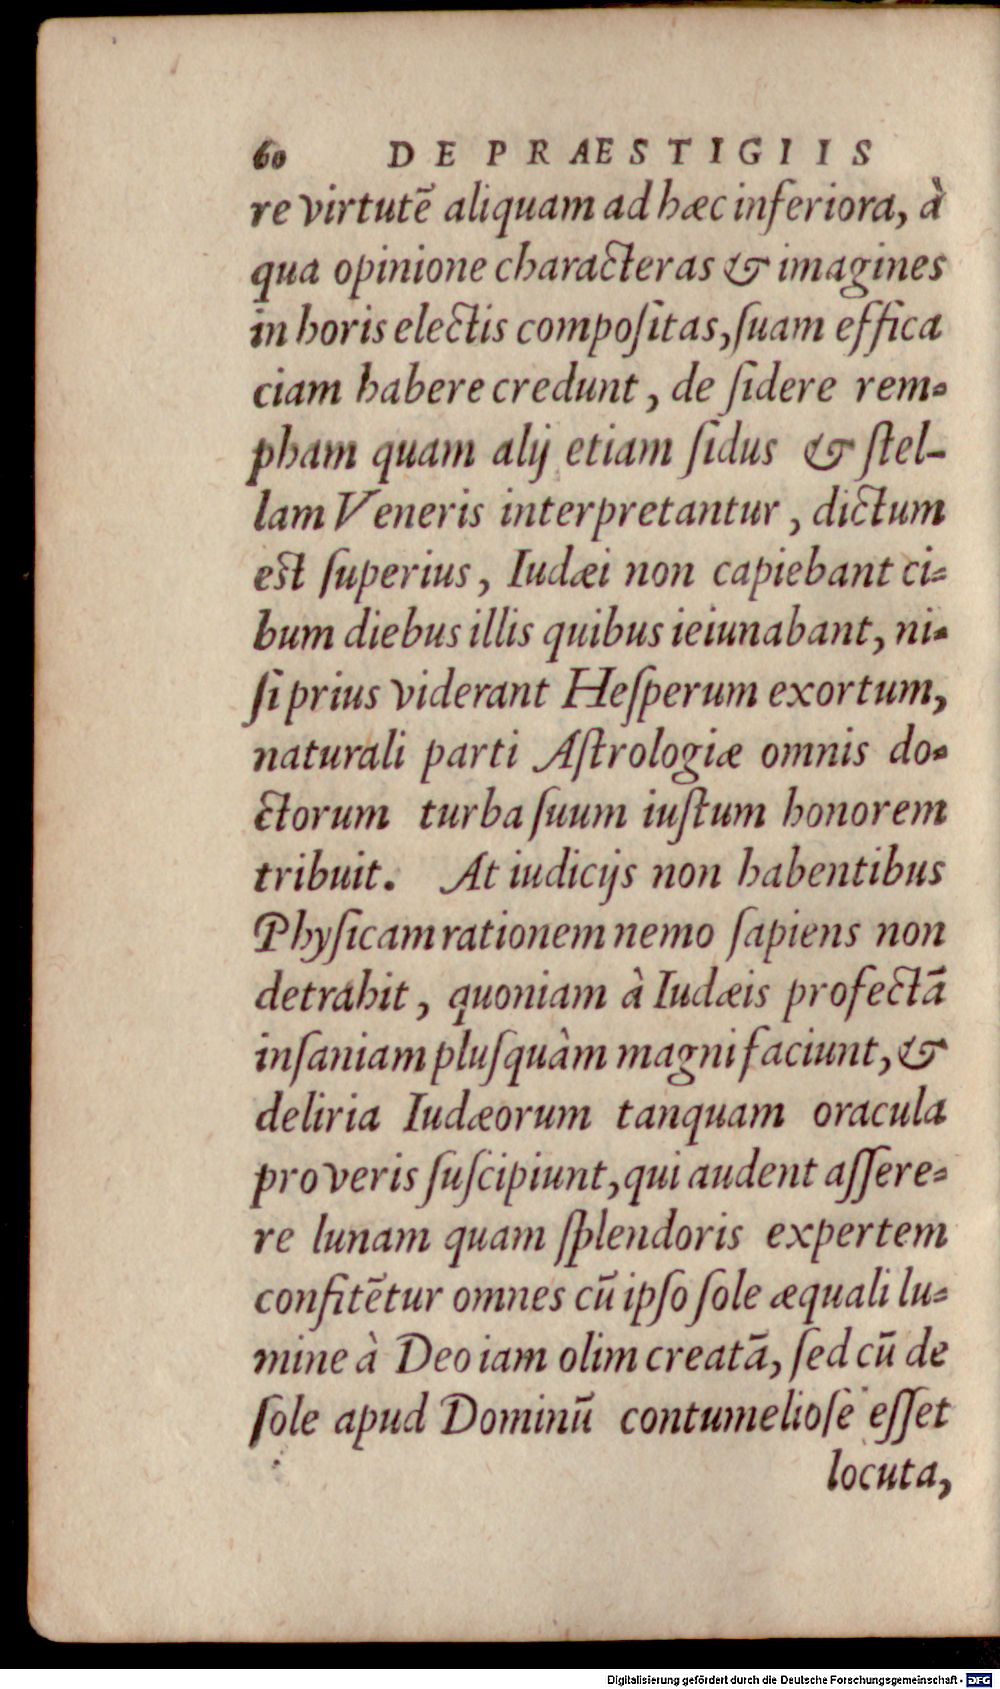 60 DE PRAESTIGIIS
re virtutẽ aliquam ad hæc inferiora, à
qua opinione characteras & imagines
in horis electis compoſitas, ſuam effica
ciam habere credunt, de ſidere rem=
pham quam alij etiam ſidus & ſtel-
lam Veneris interpretantur, dictum
est ſuperius, Iudæi non capiebant ci=
bum diebus illis quibus ieiunabant, ni=
ſi prius viderant Heſperum exortum,
naturali parti Aſtrologiæ omnis do=
ctorum turba ſuum iuſtum honorem
tribuit. At iudicijs non habentibus
Phyſicam rationem nemo ſapiens non
detrahit, quoniam à Iudæis profectã
inſaniam pluſquàm magni faciunt, &
deliria Iudæorum tanquam oracula
pro veris ſuſcipiunt, qui audent aſſere=
re lunam quam ſplendoris expertem
confitẽtur omnes cũ ipſo ſole æquali lu=
mine à Deo iam olim creatã, ſed cũ de
ſole apud Dominũ contumelioſe eſſet
locuta,
Digitalisierung gefördert durch die Deutsche Forschungsgemeinschaft - DFG